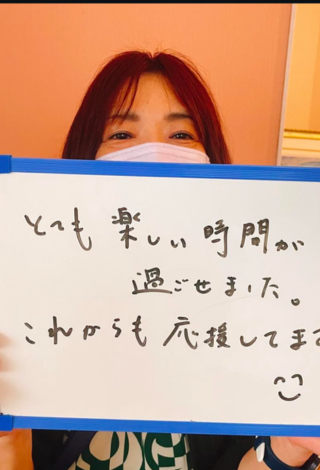 とても楽しい時間が
過ごせました。
これからも応援してます